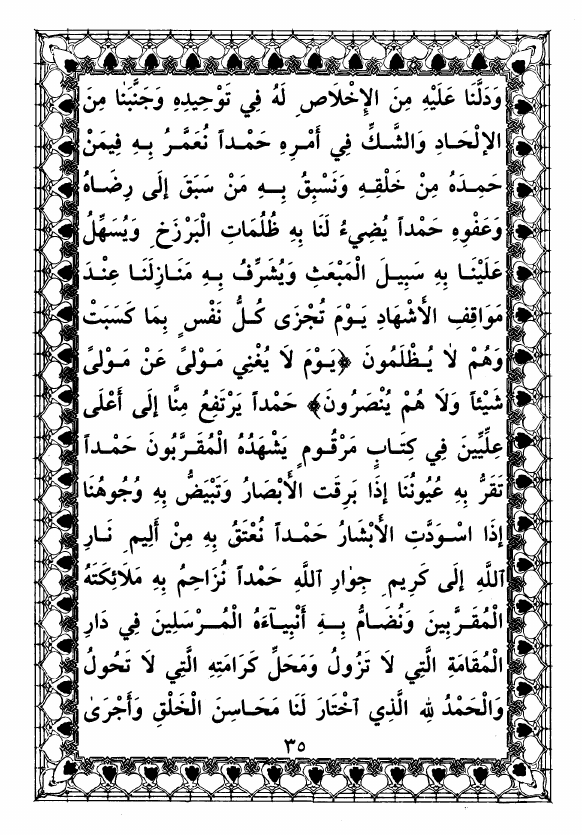 وَدَلَّنَا عَلَيْهِ مِنَ الإِخْلَاصِ لَهُ فِي تَوْحِيدِهِ وَجَنَّبَنَا مِنَ
الإِلْحَادِ وَالشَّكِّ فِي أَمْرِهِ حَمْداً نُعَمَّرُ بِهِ فِيمَنْ
حَمِدَهُ مِنْ خَلْقِهِ وَنَسْبِقُ بِهِ مَنْ سَبَقَ إِلَى رِضَاهُ
وَعَفْوِهِ حَمْداً يُضِيءُ لَنَا بِهِ ظُلُمَاتِ الْبَرْزَخِ وَيُسَهِّلُ
عَلَيْنَا بِهِ سَبِيلَ الْمَبْعَثِ وَيُشَرِّفُ بِهِ مَنَازِلَنَا عِنْدَ
مَوَاقِفِ الأَشْهَادِ يَوْمَ تُجْزَى كُلُّ نَفْسٍ بِمَا كَسَبَتْ
وَهُمْ لَا يُظْلَمُونَ ﴿يَوْمَ لَا يُغْنِي مَوْلىً عَنْ مَوْلىً
شَيْئاً وَلَا هُمْ يُنْصَرُونَ﴾ حَمْداً يَرْتَفِعُ مِنَّا إِلَى أَعْلَى
عِلِّيِّينَ فِي كِتَابٍ مَرْقُومٍ يَشْهَدُهُ الْمُقَرَّبُونَ حَمْداً
تَقَرُّ بِهِ عُيُونُنَا إِذَا بَرِقَتِ الأَبْصَارُ وَتَبْيَضُّ بِهِ وُجُوهُنَا
إِذَا اسْوَدَّتِ الأَبْشَارُ حَمْداً نُعْتَقُ بِهِ مِنْ أَلِيمِ نَارِ
اللَّهِ إِلَى كَرِيمِ جِوَارِ اللَّهِ حَمْداً نُزَاحِمُ بِهِ مَلَائِكَتَهُ
الْمُقَرَّبِينَ وَنُضَامُّ بِهِ أَنْبِيَآءَهُ الْمُرْسَلِينَ فِي دَارِ
الْمُقَامَةِ الَّتِي لَا تَزُولُ وَمَحَلِّ كَرَامَتِهِ الَّتِي لَا تَحُولُ
وَالْحَمْدُ لِلَّهِ الَّذِي اخْتَارَ لَنَا مَحَاسِنَ الْخَلْقِ وَأَجْرَى
٣٥